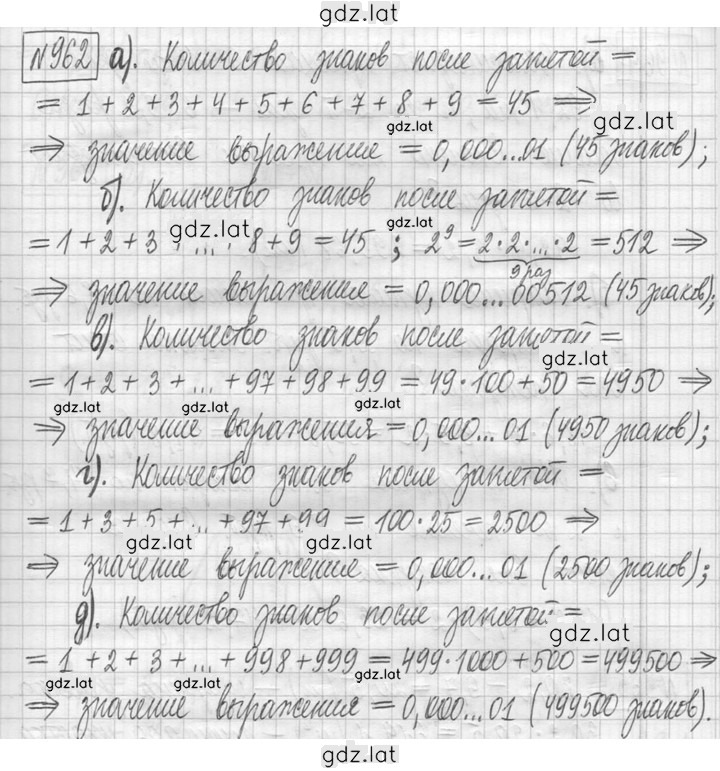 gdz.lat
№962 а). Количество знаков после запятой =
= 1 + 2 + 3 + 4 + 5 + 6 + 7 + 8 + 9 = 45 ⇒
gdz.lat gdz.lat
⇒ значение выражение = 0,000...01 (45 знаков);
б). Количество знаков после запятой =
gdz.lat gdz.lat
= 1 + 2 + 3 + ... + 8 + 9 = 45 ; 2⁹ = 2·2·...·2 = 512 ⇒
9 раз
⇒ значение выражения = 0,000...00512 (45 знаков);
в). Количество знаков после запятой =
gdz.lat
= 1 + 2 + 3 + ... + 97 + 98 + 99 = 49·100 + 50 = 4950 ⇒
gdz.lat gdz.lat gdz.lat
⇒ значение выражения = 0,000...01 (4950 знаков);
г). Количество знаков после запятой =
= 1 + 3 + 5 + ... + 97 + 99 = 100·25 = 2500 ⇒
gdz.lat gdz.lat
⇒ значение выражение = 0,000...01 (2500 знаков);
д). Количество знаков после запятой =
gdz.lat
= 1 + 2 + 3 + ... + 998 + 999 = 499·1000 + 500 = 499500 ⇒
gdz.lat gdz.lat
⇒ значение выражения = 0,000...01 (499500 знаков).
gdz.lat